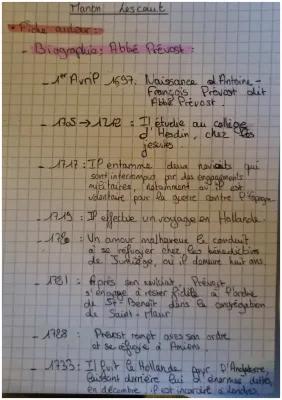 Manon Lescaut
• Fiche auteur :
- Biographie : Abbé Prévost :
- 1er Avril 1697. Naissance d'Antoine-
François Prévost dit
Abbé Prévost.
- 1705 → 1712 : Il étudie au collège
d'Hesdin, chez les
jésuites
- 1717 : Il entamme deux noviciats qui
sont interrompus par des engagements
militaires, notamment où il est
volontaire pour la guerre contre l'Espagne.
- 1719 : Il effectue un voyage en Hollande.
- Un amour malheureux le conduit
à se réfugier chez les bénédictins
de Jumiège, où il demeure huit ans.
- Après son noviciat, Prévost
s'engage à rester fidèle à l'ordre
de St-Benoît dans la congrégation
de Saint-Maur.
- 1728 : Prévost rompt avec son ordre
et se réfugie à Amiens.
- 1733 : Il fuit la Hollande pour D'Angleterre,
laissant derrière lui d'énormes dettes,
en décembre, il est incarcéré à Londres.